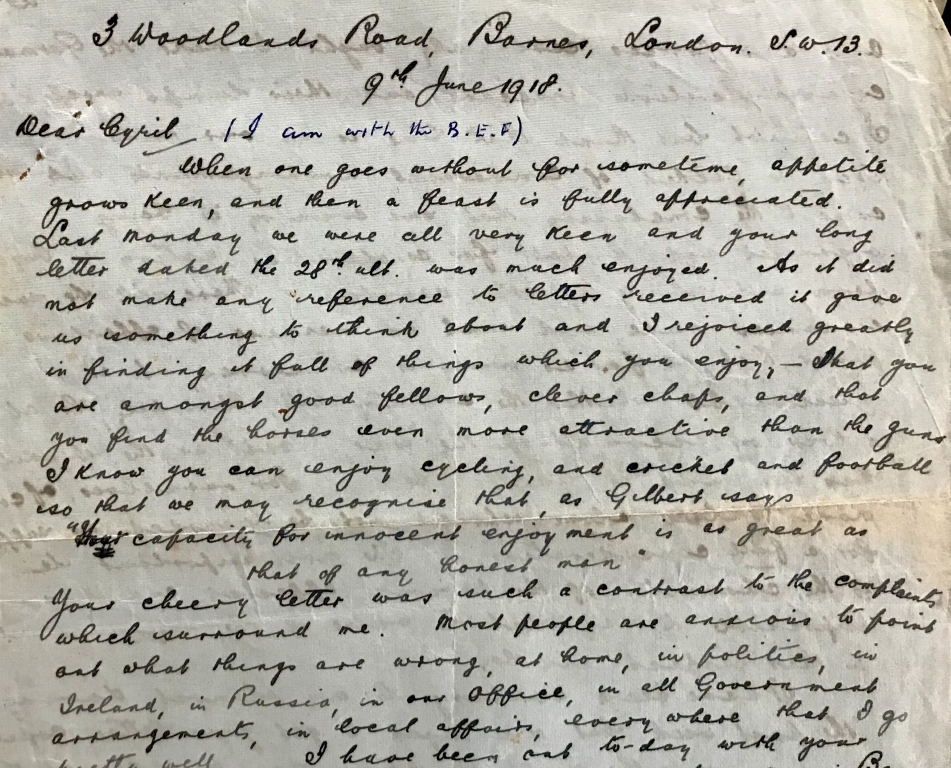 3 Woodlands Road, Barnes, London. S.W.13.
9th June 1918.
Dear Cyril (I am with the B.E.F)
When one goes without for sometime, appetite
grows keen, and then a feast is fully appreciated.
Last Monday we were all very keen and your long
letter dated the 28th ult. was much enjoyed. As it did
not make any reference to letters received it gave
us something to think about and I rejoiced greatly
in finding it full of things which you enjoy, — that you
are amongst good fellows, clever chaps, and that
you find the horses even more attractive than the guns
I know you can enjoy cycling, and cricket and football
so that we may recognise that, as Gilbert says
"Your capacity for innocent enjoyment is as great as
that of any honest man"
Your cheery letter was such a contrast to the complaints
which surround me. Most people are anxious to point
out what things are wrong, at home, in politics, in
Ireland, in Russia, in our Office, in all Government
arrangements, in local affairs, every where that I go
pretty well. I have been out to-day with your